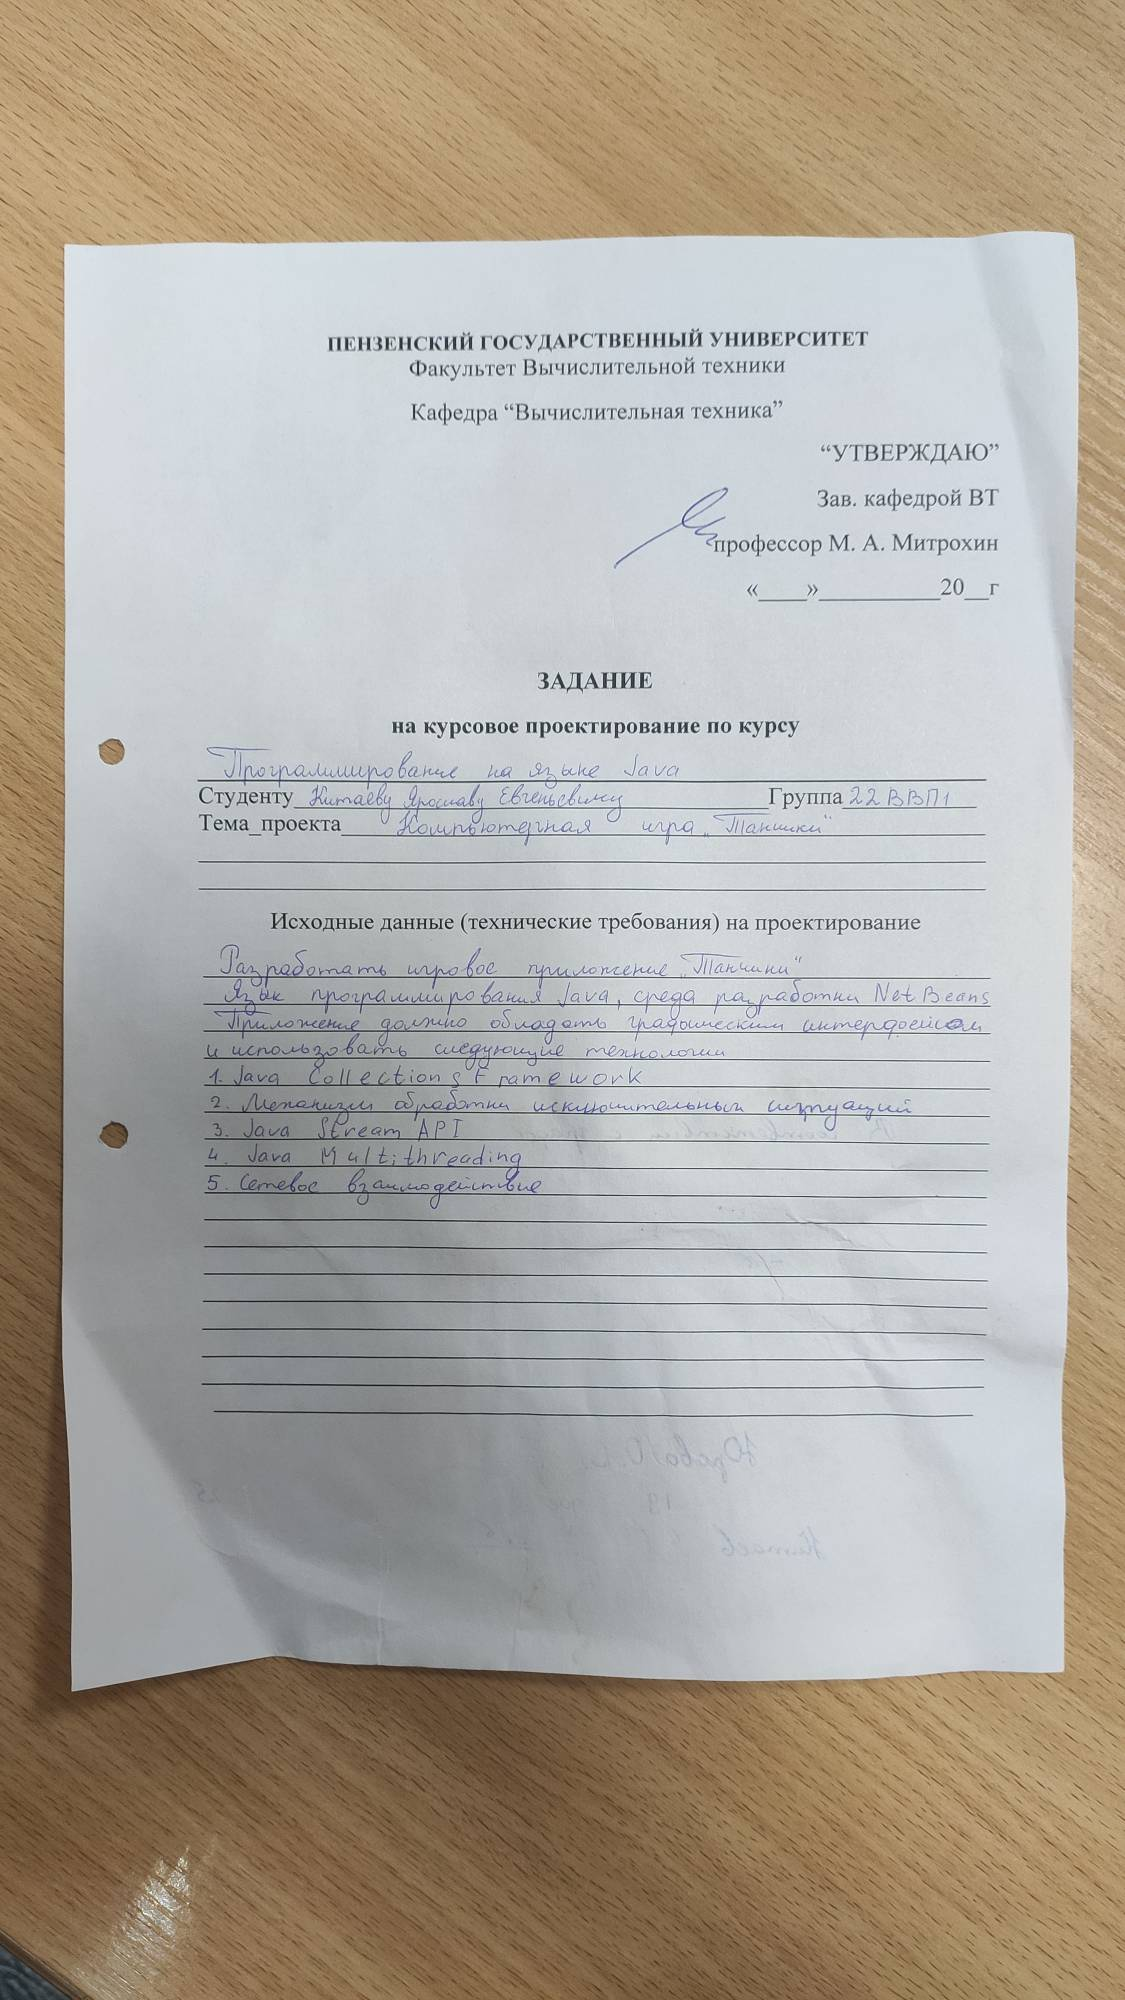 ПЕНЗЕНСКИЙ ГОСУДАРСТВЕННЫЙ УНИВЕРСИТЕТ
Факультет Вычислительной техники
Кафедра “Вычислительная техника”
“УТВЕРЖДАЮ”
Зав. кафедрой ВТ
профессор М. А. Митрохин
«____»__________20__г
ЗАДАНИЕ
на курсовое проектирование по курсу
Программирование на языке Java
Студенту Китаеву Ярославу Евгеньевичу Группа 22ВВП1
Тема_проекта Компьютерная игра „Танчики“
Исходные данные (технические требования) на проектирование
Разработать игровое приложение „Танчики“
Язык программирования Java, среда разработки NetBeans
Приложение должно обладать графическим интерфейсом
и использовать следующие технологии
1. Java Collections Framework
2. Механизм обработки исключительных ситуаций
3. Java Stream API
4. Java Multithreading
5. Сетевое взаимодействие